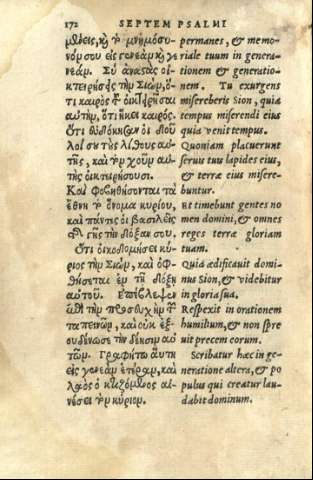 172 SEPTEM PSALMI
μένεις, καὶ τὸ μνημόσυ-
νόν σου εἰς γενεὰν καὶ γε
νεάν. Σὺ ἀναστὰς οἰ-
κτειρήσῃς τὴν Σιὼν, ὅ-
τι καιρὸς τοῦ οἰκτειρῆσαι
αὐτὴν, ὅτι ἥκει καιρός.
Ὅτι εὐδόκησαν οἱ δοῦ
λοί σου τοὺς λίθους αὐτῆς
, καὶ τὸν χοῦν αὐ-
τῆς οἰκτειρήσουσι.
Καὶ φοβηθήσονται τὰ
ἔθνη τὸ ὄνομα κυρίου,
καὶ πάντες οἱ βασιλεῖς
τῆς γῆς τὴν δόξαν σου.
Ὅτι οἰκοδομήσει κύ-
ριος τὴν Σιὼν, καὶ ὀφ-
θήσεται ἐν τῇ δόξῃ
αὐτοῦ. Ἐπέβλεψεν
ἐπὶ τὴν προσευχὴν τῶν
ταπεινῶν, καὶ οὐκ ἐξ-
ουδένωσε τὴν δέησιν αὐ
τῶν. Γραφήτω αὕτη
εἰς γενεὰν ἑτέραν, καὶ
λαὸς ὁ κτιζόμενος αἰ-
νέσει τὸν κύριον.
permanes, & memo-
riale tuum in genera-
tionem & generatio-
nem. Tu exurgens
misereberis Sion, quia
tempus miserendi eius
quia venit tempus.
Quoniam placuerunt
seruis tuis lapides eius,
& terræ eius misere-
buntur.
Et timebunt gentes no
men domini, & omnes
reges terræ gloriam
tuam.
Quia ædificauit domi-
nus Sion, & videbitur
in gloria sua.
Respexit in orationem
humilium, & non spre
uit precem eorum.
Scribatur hæc in ge-
neratione altera, & po
pulus qui creatur lau-
dabit dominum.